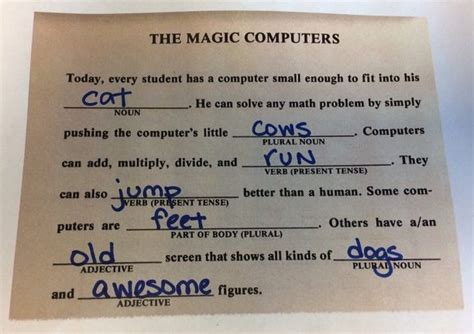 THE MAGIC COMPUTERS
Today, every student has a computer small enough to fit into his
cat. He can solve any math problem by simply
NOUN
pushing the computer's little cows. Computers
PLURAL NOUN
can add, multiply, divide, and run. They
VERB (PRESENT TENSE)
can also jump better than a human. Some com-
VERB (PRESENT TENSE)
puters are feet. Others have a/an
PART OF BODY (PLURAL)
old screen that shows all kinds of dogs
ADJECTIVE PLURAL NOUN
and awesome figures.
ADJECTIVE